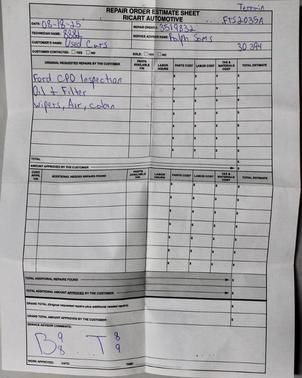 REPAIR ORDER ESTIMATE SHEET
RICART AUTOMOTIVE
Terrain
DATE: 08-18-25
REPAIR ORDER #: 3519832
FTS2035A
TECHNICIAN NAME: 8881
SERVICE ADVISOR NAME: Ralph Sams
CUSTOMER'S NAME: Used Cars
30,394
CUSTOMER CONTACTED: YES NO
SOLD: YES NO
ORIGINAL REQUESTED REPAIRS BY THE CUSTOMER
PARTS AVAILABLE Y/N
LABOR HOURS
PARTS COST
LABOR COST
TAX & MATERIALS COST
TOTAL ESTIMATE
Ford CPO Inspection
Oil + Filter
wipers, Air, cabin
TOTAL
AMOUNT APPROVED BY THE CUSTOMER
CUST. APPR. Y/N
ADDITIONAL NEEDED REPAIRS FOUND
PARTS AVAILABLE Y/N
LABOR HOURS
PARTS COST
LABOR COST
TAX & MATERIALS COST
TOTAL ESTIMATE
TOTAL ADDITIONAL REPAIRS FOUND
TOTAL ADDITIONAL AMOUNT APPROVED BY THE CUSTOMER
GRAND TOTAL (Original requested repairs plus additional needed repairs)
GRAND TOTAL AMOUNT APPROVED BY THE CUSTOMER
SERVICE ADVISOR COMMENTS:
B 9 8 T 8 9
WORK APPROVED: DATE: TIME: